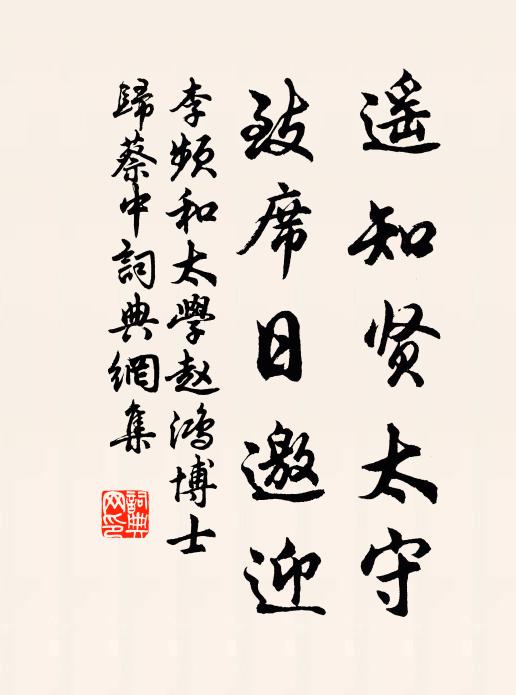 遥知贤太守
致席日邀迎
李频和太學赵鸿博士
歸蔡中詞典網集
詞典
网印